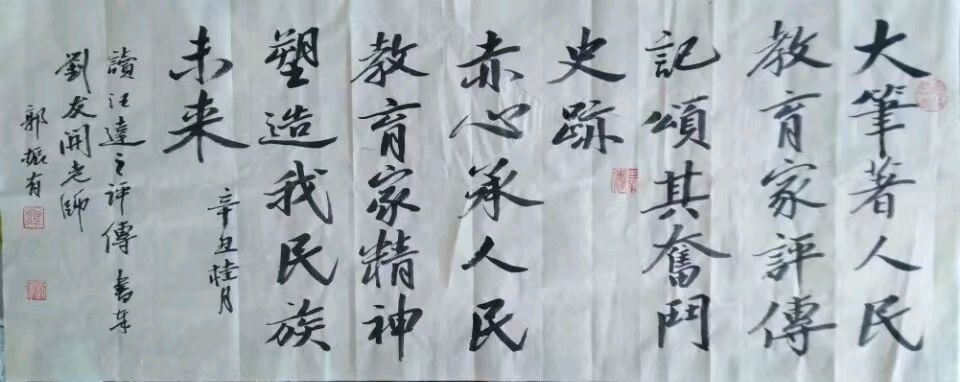 大筆著人民
教育家評傳
記頌其奮鬥
史跡
赤心承人民
教育家精神
塑造我民族
未来
辛丑桂月
讀汪達之評傳書奉
劉友開老師
郭振有